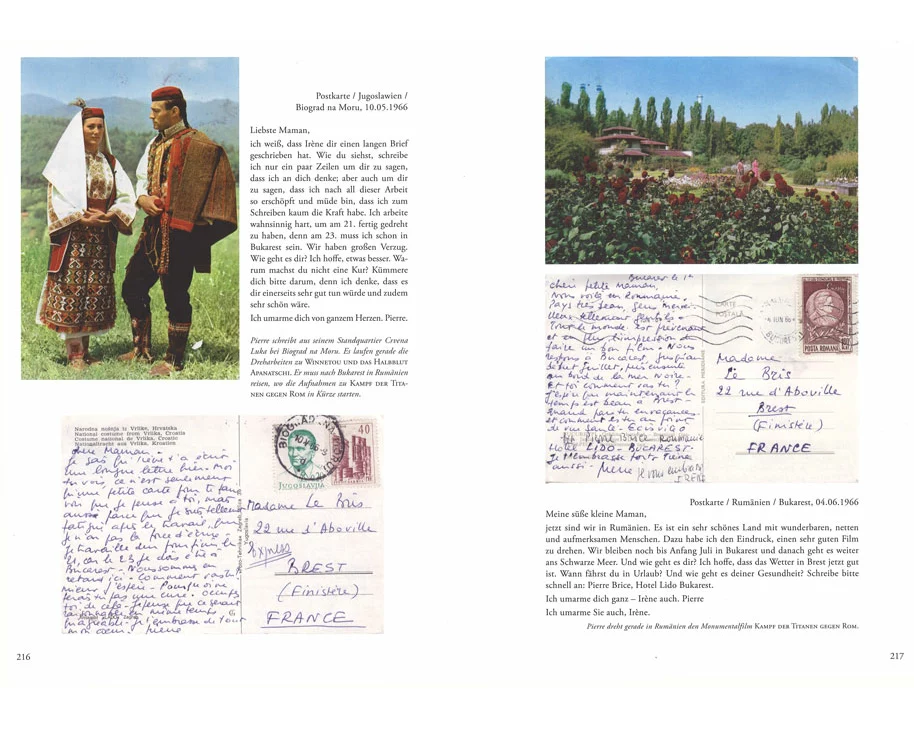 Postkarte / Jugoslawien /
Biograd na Moru, 10.05.1966
Liebste Maman,
ich weiß, dass Irène dir einen langen Brief
geschrieben hat. Wie du siehst, schreibe
ich nur ein paar Zeilen um dir zu sagen,
dass ich an dich denke; aber auch um dir
zu sagen, dass ich nach all dieser Arbeit
so erschöpft und müde bin, dass ich zum
Schreiben kaum die Kraft habe. Ich arbeite
wahnsinnig hart, um am 21. fertig gedreht
zu haben, denn am 23. muss ich schon in
Bukarest sein. Wir haben großen Verzug.
Wie geht es dir? Ich hoffe, etwas besser. Wa-
rum machst du nicht eine Kur? Kümmere
dich bitte darum, denn ich denke, dass es
dir einerseits sehr gut tun würde und zudem
sehr schön wäre.
Ich umarme dich von ganzem Herzen. Pierre.
Pierre schreibt aus seinem Standquartier Crvena
Luka bei Biograd na Moru. Es laufen gerade die
Dreharbeiten zu WINNETOU UND DAS HALBBLUT
APANATSCHI. Er muss nach Bukarest in Rumänien
reisen, wo die Aufnahmen zu KAMPF DER TITA-
NEN GEGEN ROM in Kürze starten.
Narodna nošnja iz Vrlike, Hrvatska
National costume from Vrlika, Croatia
Costume national de Vrlika, Croatie
Nationaltracht aus Vrlika, Kroatien
chère Maman -
Je sais qu'Irène t'a écrit
une longue lettre bien. Moi
tu vois, ce n'est seulement
qu'une petite carte pour te faire
voir que je pense à toi, mais
aussi parce que je suis tellement
fatigué après le travail, que
je n'ai pas la force d'écrire -
Je travaille
21, car le 23 je dois être à
Bucarest - Nous sommes en
retard ici - Comment vas-tu?
mieux j'espère - Pourquoi ne
ferais tu pas une cure. occupe
toi de cela - je pense que ce serait
agréable - je t'embrasse de tout
mon cœur. Pierre
BIOGRAD NA MORU
40
JUGOSLAVIJA
Madame Le Bris
22 rue d'Aboville
Express
BREST
(Finistère)
FRANCE
216
Bucarest le
chère petite Maman,
Nous voilà en Roumanie,
Pays très beau, gens merveil-
leux tellement gentils -
Tout le monde est prévenant
et en plus l'impression de
faire un bon film - Nous
restons à Bucarest jusqu'au
début Juillet, puis ensuite
au bord de la mer Noire -
Et toi comment vas tu ?
J'espère que maintenant le
temps est beau à Brest -
Quand pars tu en vacances -
et comment es tu au point
de vue santé - Ecris vite
Pierre Brice Roumanie
Hotel LIDO - BUCAREST -
Je t'embrasse fort Irène
aussi - Pierre
je vous embrasse
IRENE
CARTE
POSTALA
- 4 JUN 66 -
POSTA ROMANA
Madame
Le Bris
22 rue d'Aboville
Brest
(Finistère)
FRANCE
Postkarte / Rumänien / Bukarest, 04.06.1966
Meine süße kleine Maman,
jetzt sind wir in Rumänien. Es ist ein sehr schönes Land mit wunderbaren, netten
und aufmerksamen Menschen. Dazu habe ich den Eindruck, einen sehr guten Film
zu drehen. Wir bleiben noch bis Anfang Juli in Bukarest und danach geht es weiter
ans Schwarze Meer. Und wie geht es dir? Ich hoffe, dass das Wetter in Brest jetzt gut
ist. Wann fährst du in Urlaub? Und wie geht es deiner Gesundheit? Schreibe bitte
schnell an: Pierre Brice, Hotel Lido Bukarest.
Ich umarme dich ganz – Irène auch. Pierre
Ich umarme Sie auch, Irène.
Pierre dreht gerade in Rumänien den Monumentalfilm KAMPF DER TITANEN GEGEN ROM.
217